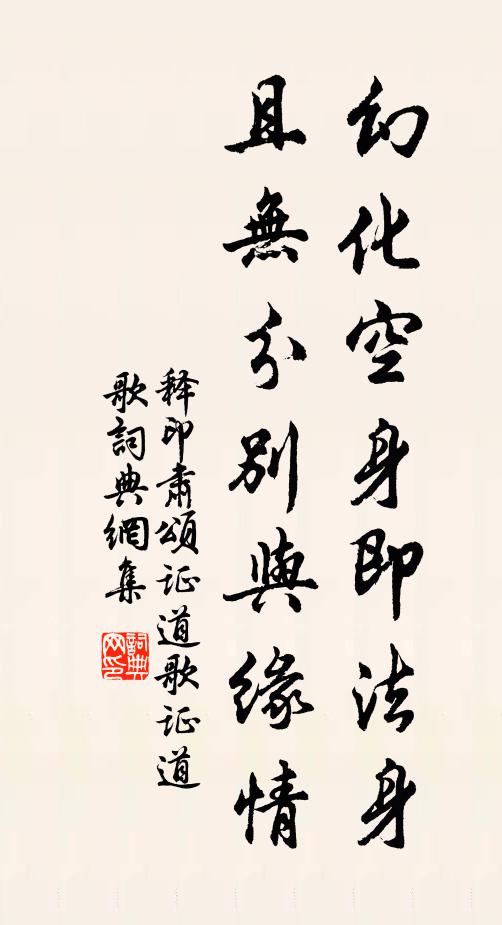 幻化空身即法身
且無分別與緣情
释印肃頌证道歌证道
歌詞典網集
詞典
网印